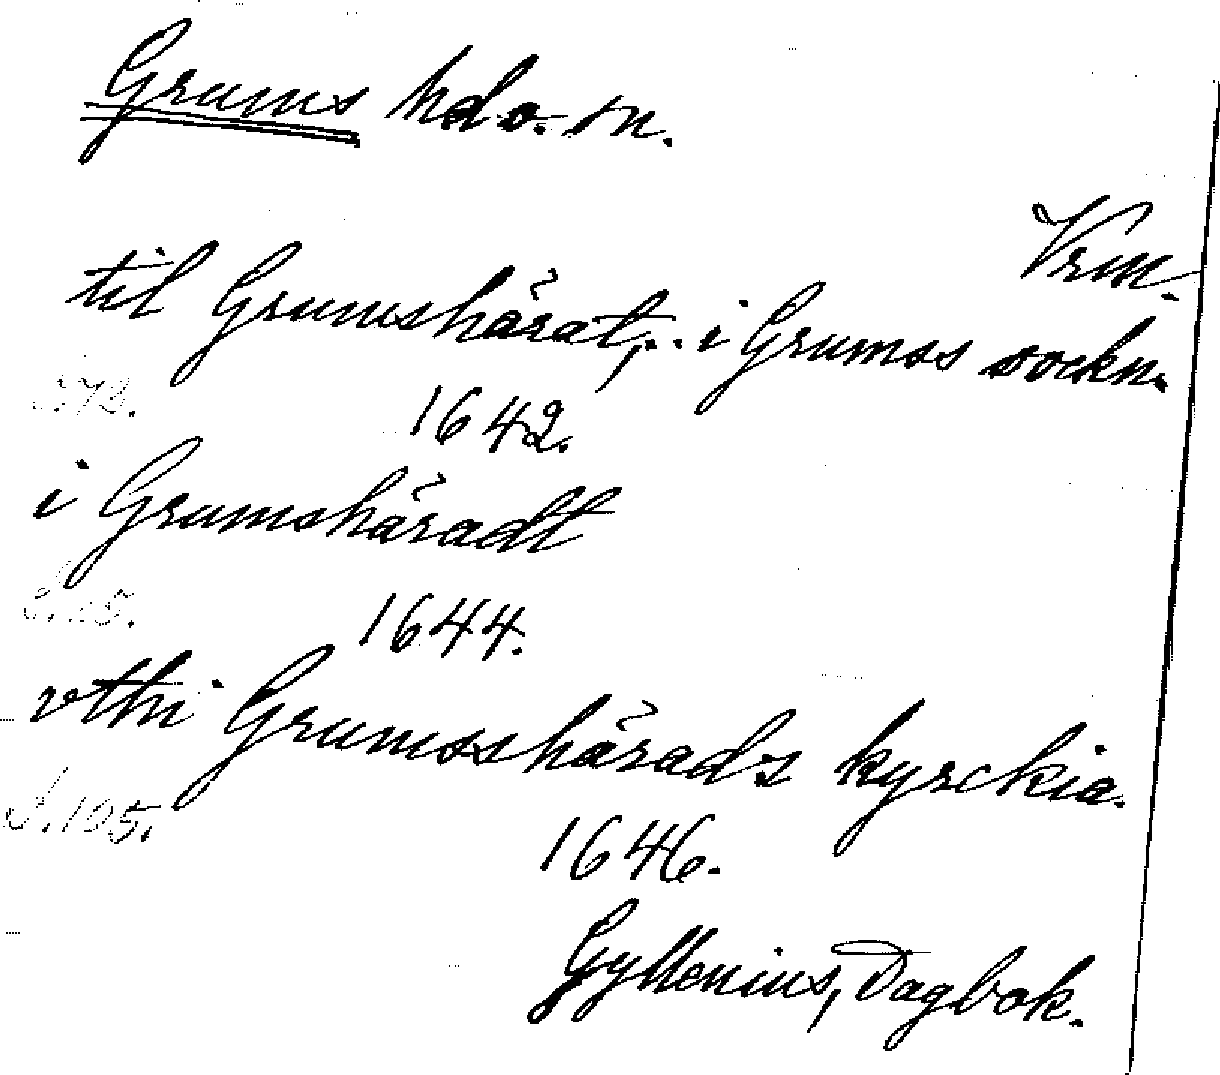 Grums hd o. sn.
Vrm.
til Grumshärat, .. i Grumss sockn.
1642.
i Grumshäradt
1644.
vthi Grumsshäradz kyrckia.
S. 105.
1646.
Gyllenius, Dagbok.